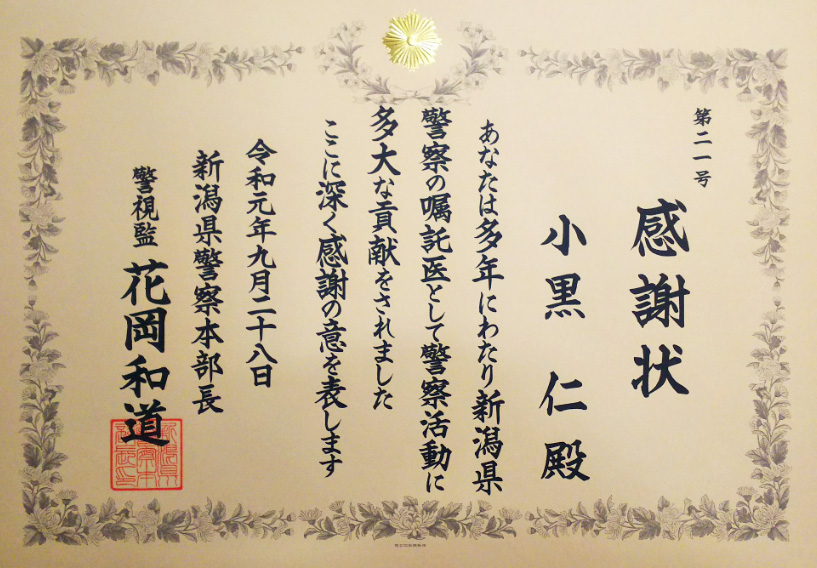 第二一号
感謝状
小黒 仁 殿
あなたは多年にわたり新潟県
警察の嘱託医として警察活動に
多大な貢献をされました
ここに深く感謝の意を表します
令和元年九月二十八日
新潟県警察本部長
警視監 花岡和道